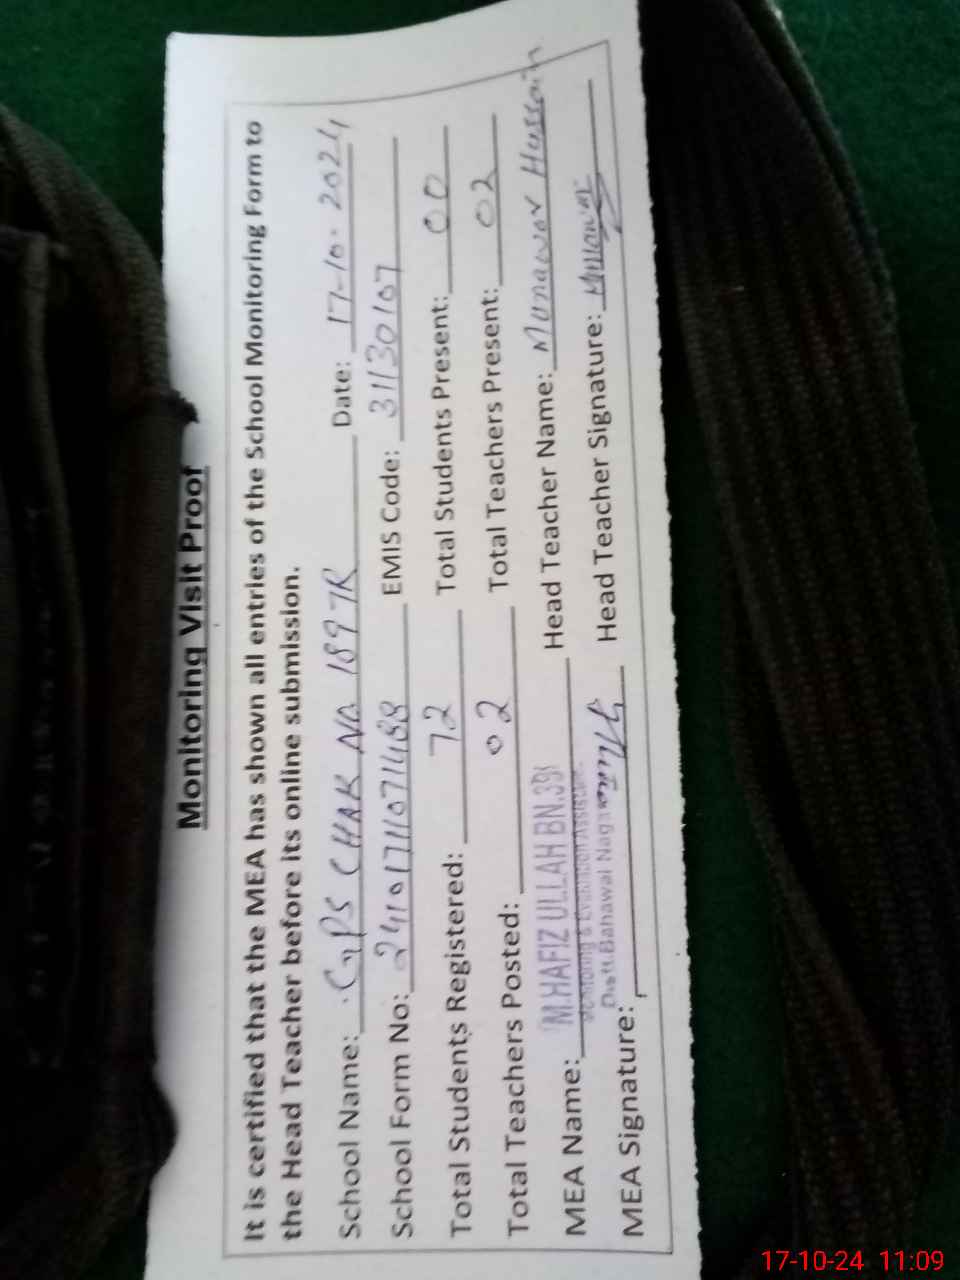 Monitoring Visit Proof
It is certified that the MEA has shown all entries of the School Monitoring Form to
the Head Teacher before its online submission.
School Name: GPS CHAK NO 1897R Date: 17-10-2024
School Form No: 24101711071488 EMIS Code: 31130107
Total Students Registered: 72 Total Students Present: 00
Total Teachers Posted: 02 Total Teachers Present: 02
MEA Name: M.HAFIZ ULLAH BN.391 Head Teacher Name: Munawar Hussain
Monitoring & Evaluation Assistant
Distt.Bahawal Nagar
MEA Signature: Head Teacher Signature: Munawar
17-10-24 11:09